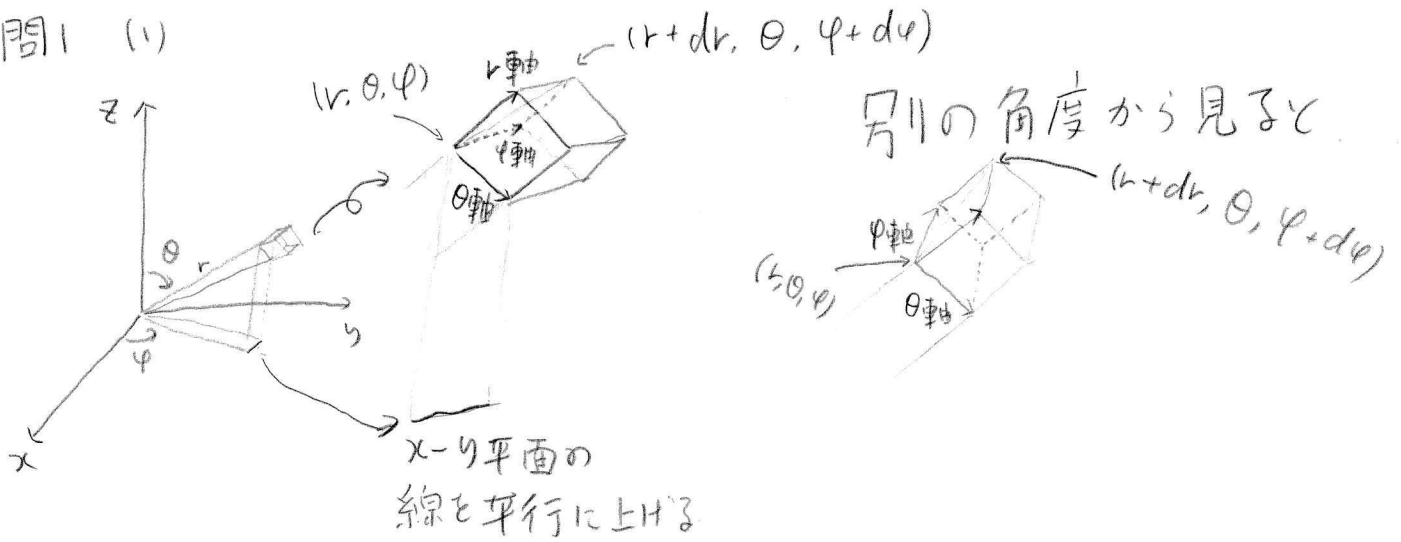 問1 (1)
(r+dr, θ, φ+dφ)
(r, θ, φ)
r軸
φ軸
θ軸
z
θ
r
y
φ
x
x-y平面の
線を平行に上げる
別の角度から見ると
(r+dr, θ, φ+dφ)
φ軸
(r, θ, φ)
θ軸